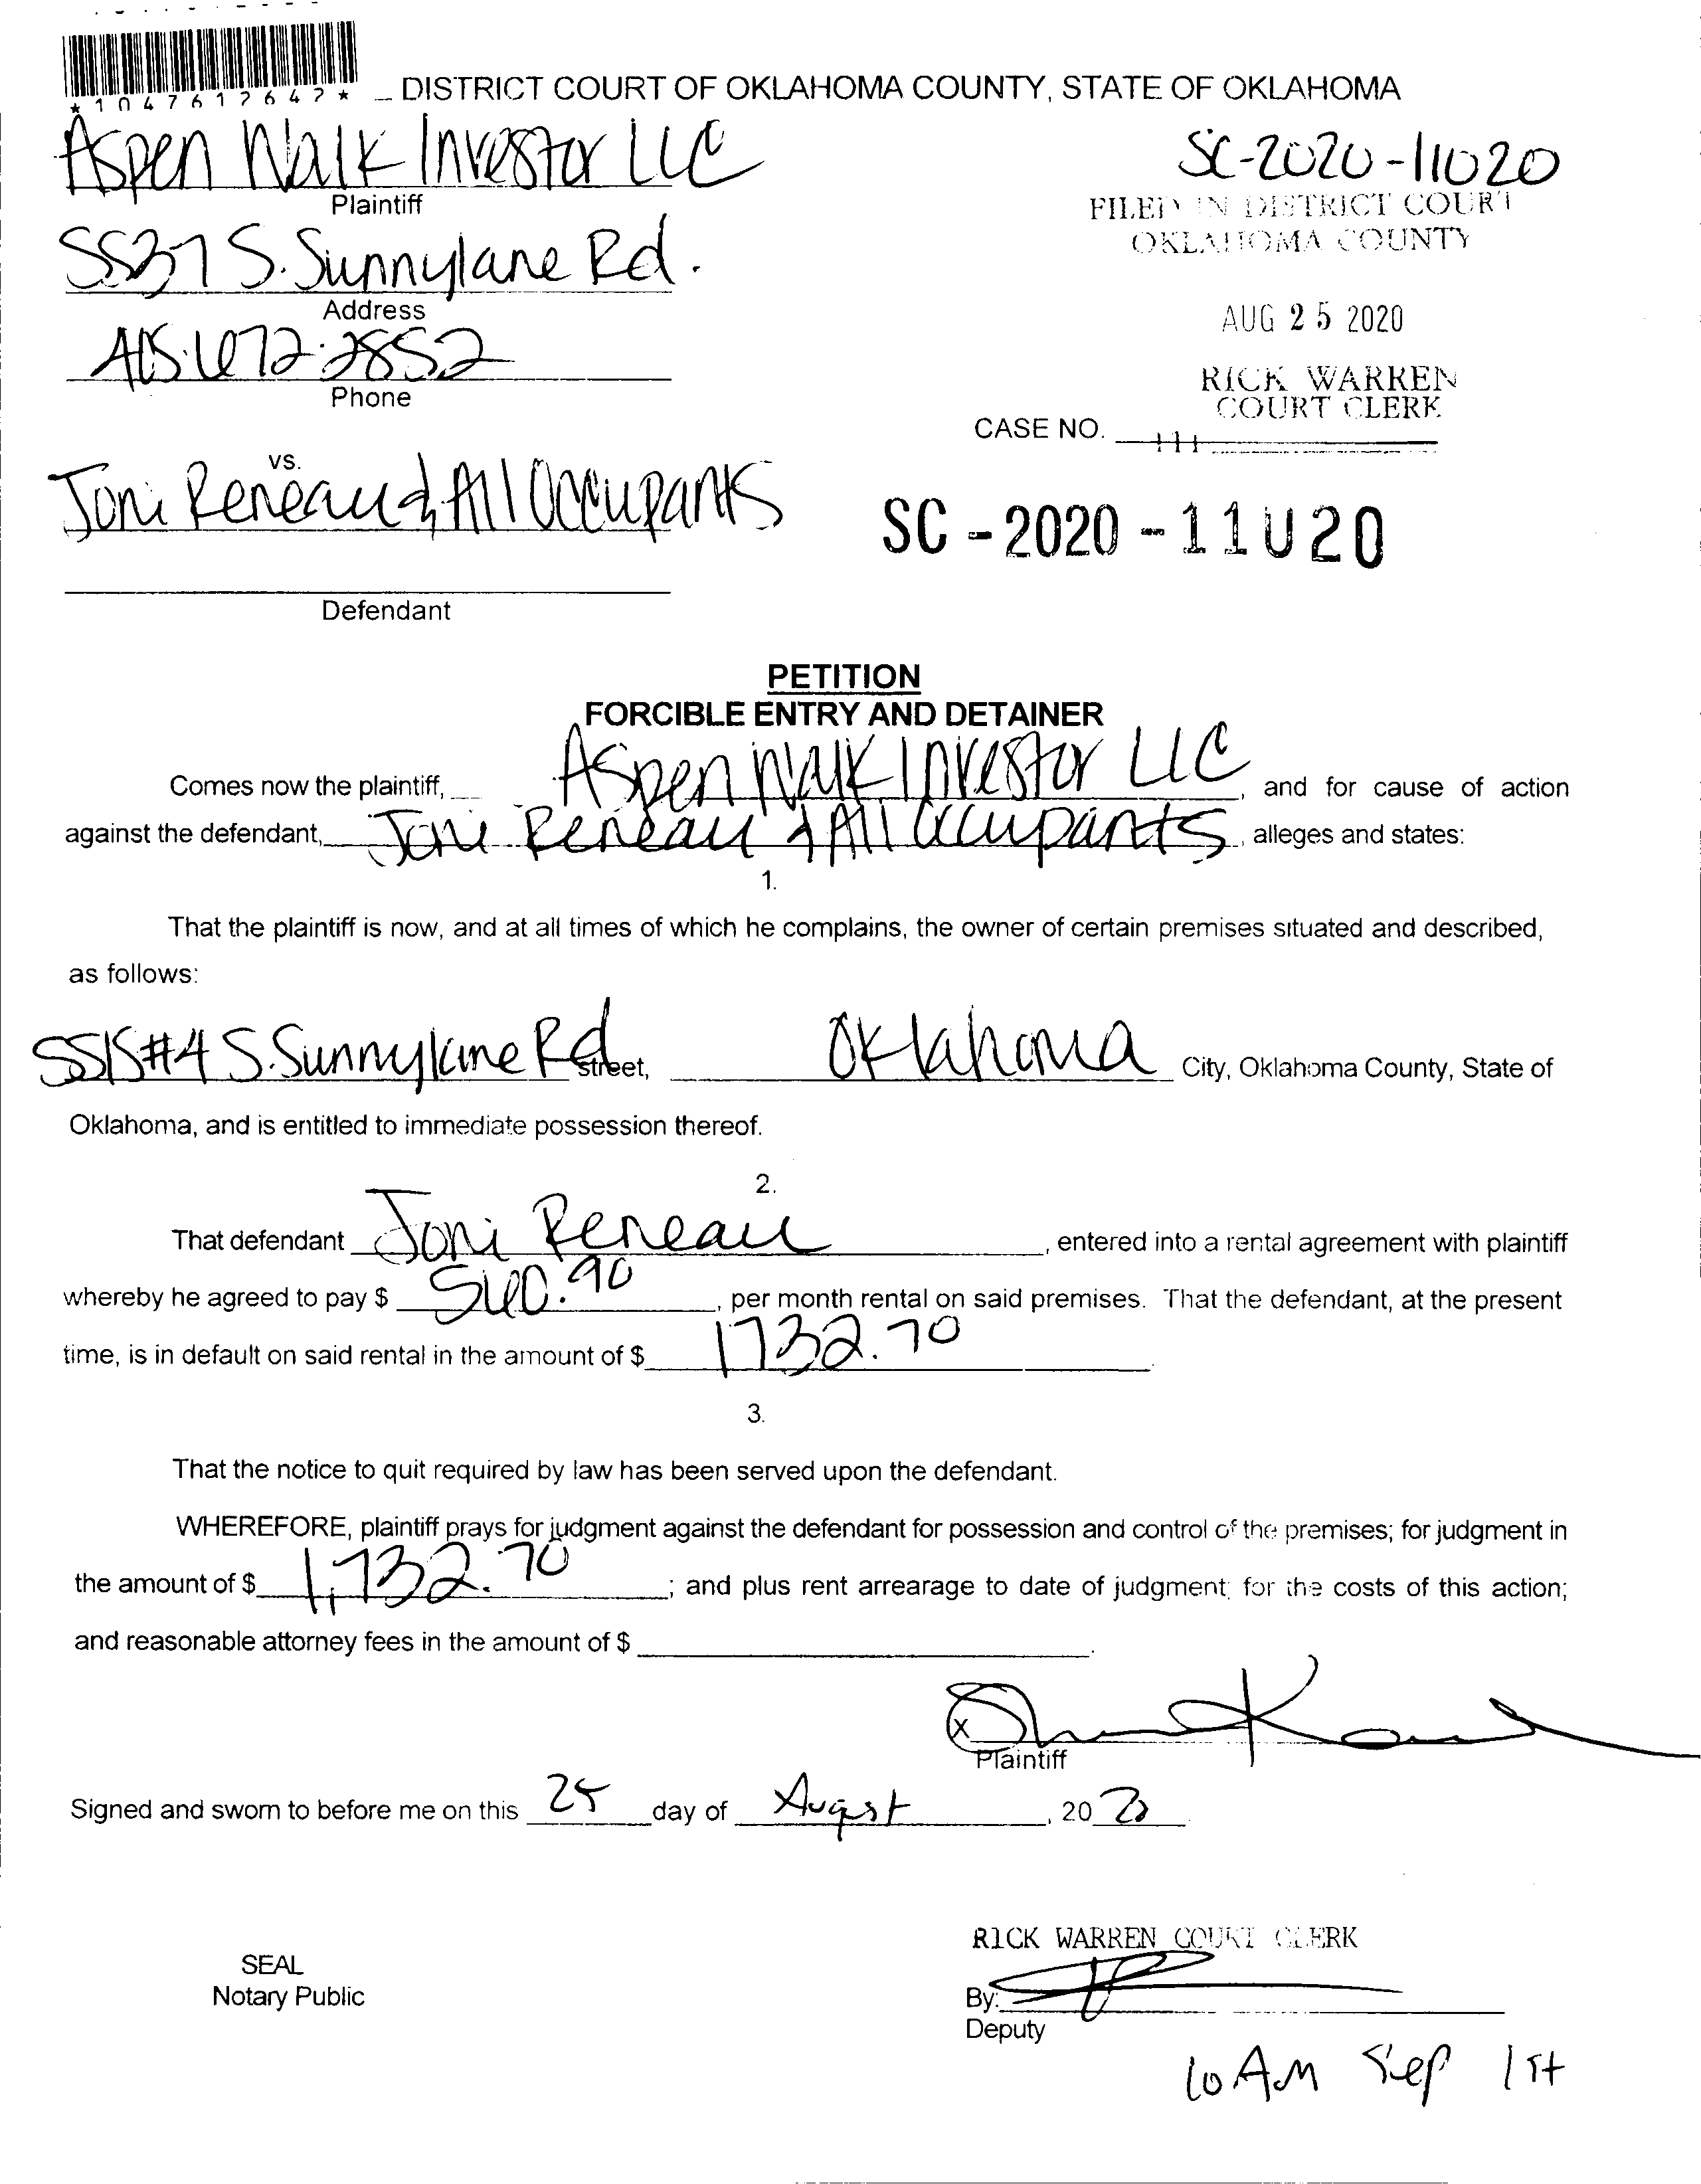 *1047612642*
DISTRICT COURT OF OKLAHOMA COUNTY, STATE OF OKLAHOMA
Aspen Walk Investor LLC
Plaintiff
SC-2020-11020
FILED IN DISTRICT COURT
OKLAHOMA COUNTY
5537 S. Sunnylane Rd.
Address
AUG 25 2020
405.672.2852
Phone
RICK WARREN
COURT CLERK
CASE NO.
vs.
Joni Reneau & All Occupants
SC-2020-11020
Defendant
PETITION
FORCIBLE ENTRY AND DETAINER
Comes now the plaintiff, Aspen Walk Investor LLC, and for cause of action
against the defendant, Joni Reneau & All Occupants, alleges and states:
1.
That the plaintiff is now, and at all times of which he complains, the owner of certain premises situated and described,
as follows:
5515#4 S. Sunnylane Rd street, Oklahoma City, Oklahoma County, State of
Oklahoma, and is entitled to immediate possession thereof.
2.
That defendant Joni Reneau, entered into a rental agreement with plaintiff
whereby he agreed to pay $ 560.90, per month rental on said premises. That the defendant, at the present
time, is in default on said rental in the amount of $ 1732.70.
3.
That the notice to quit required by law has been served upon the defendant.
WHEREFORE, plaintiff prays for judgment against the defendant for possession and control of the premises; for judgment in
the amount of $ 1,732.70; and plus rent arrearage to date of judgment; for the costs of this action;
and reasonable attorney fees in the amount of $ .
x
Plaintiff
Signed and sworn to before me on this 25 day of August, 20 20
RICK WARREN COURT CLERK
SEAL
Notary Public
By:
Deputy
10 AM Sep 1st